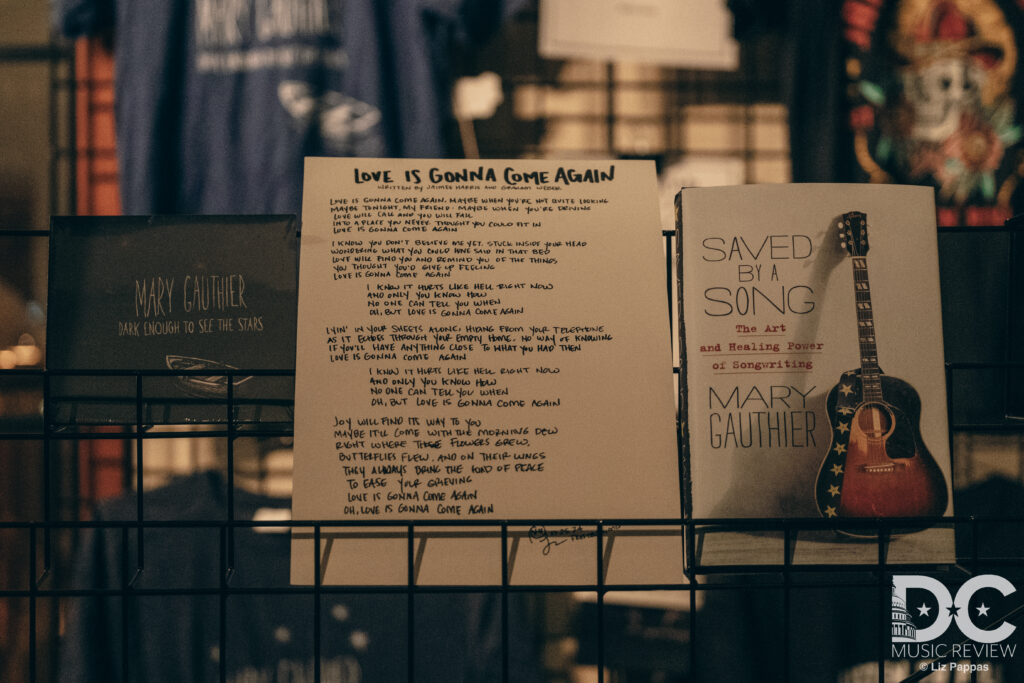 MARY GAUTHIER
MARY GAUTHIER
DARK ENOUGH TO SEE THE STARS
LOVE IS GONNA COME AGAIN
WRITTEN BY JAIMEE HARRIS AND GRAHAM WEBER
LOVE IS GONNA COME AGAIN. MAYBE WHEN YOU'RE NOT QUITE LOOKING
MAYBE TONIGHT, MY FRIEND. MAYBE WHEN YOU'RE DRIVING
LOVE WILL CALL AND YOU WILL FALL
INTO A PLACE YOU NEVER THOUGHT YOU COULD FIT IN
LOVE IS GONNA COME AGAIN
I KNOW YOU DON'T BELIEVE ME YET. STUCK INSIDE YOUR HEAD
WONDERING WHAT YOU COULD HAVE SAID IN THAT BED
LOVE WILL FIND YOU AND REMIND YOU OF THE THINGS
YOU THOUGHT YOU'D GIVE UP FEELING
LOVE IS GONNA COME AGAIN
I KNOW IT HURTS LIKE HELL RIGHT NOW
AND ONLY YOU KNOW HOW
NO ONE CAN TELL YOU WHEN
OH, BUT LOVE IS GONNA COME AGAIN
LYIN' IN YOUR SHEETS ALONE, HIDING FROM YOUR TELEPHONE
AS IT ECHOES THROUGH YOUR EMPTY HOME. NO WAY OF KNOWING
IF YOU'LL HAVE ANYTHING CLOSE TO WHAT YOU HAD THEN
LOVE IS GONNA COME AGAIN
I KNOW IT HURTS LIKE HELL RIGHT NOW
AND ONLY YOU KNOW HOW
NO ONE CAN TELL YOU WHEN
OH, BUT LOVE IS GONNA COME AGAIN
JOY WILL FIND ITS WAY TO YOU
MAYBE IT'LL COME WITH THE MORNING DEW
RIGHT WHERE THOSE FLOWERS GREW.
BUTTERFLIES FLEW. AND ON THEIR WINGS
THEY ALWAYS BRING THE KIND OF PEACE
TO EASE YOUR GRIEVING
LOVE IS GONNA COME AGAIN
OH, LOVE IS GONNA COME AGAIN
SAVED
BY A
SONG
The Art
and Healing Power
of Songwriting
MARY
GAUTHIER
DC
MUSIC REVIEW
© Liz Pappas